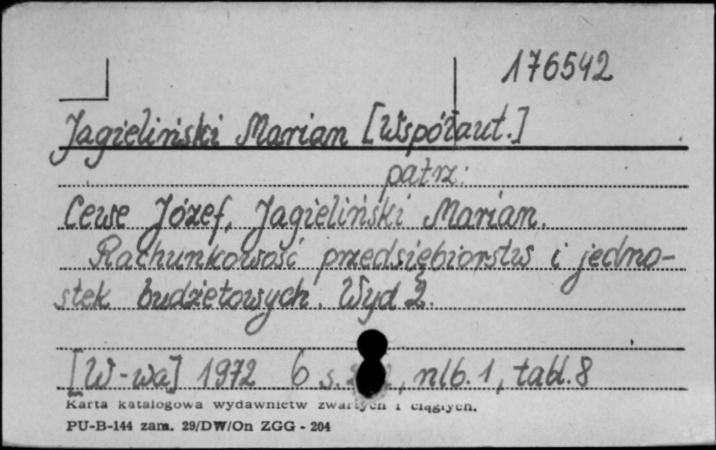 176542
Jagieliński Marian [Współaut.]
patrz:
Cewe Józef, Jagieliński Marian.
Rachunkowość przedsiębiorstw i jedno-
stek budżetowych. Wyd 2.
[W-wa] 1972 6 s. nlb. 1, tabl. 8
Karta katalogowa wydawnictw zwartych i ciągłych.
PU-B-144 zam. 29/DW/On ZGG - 204